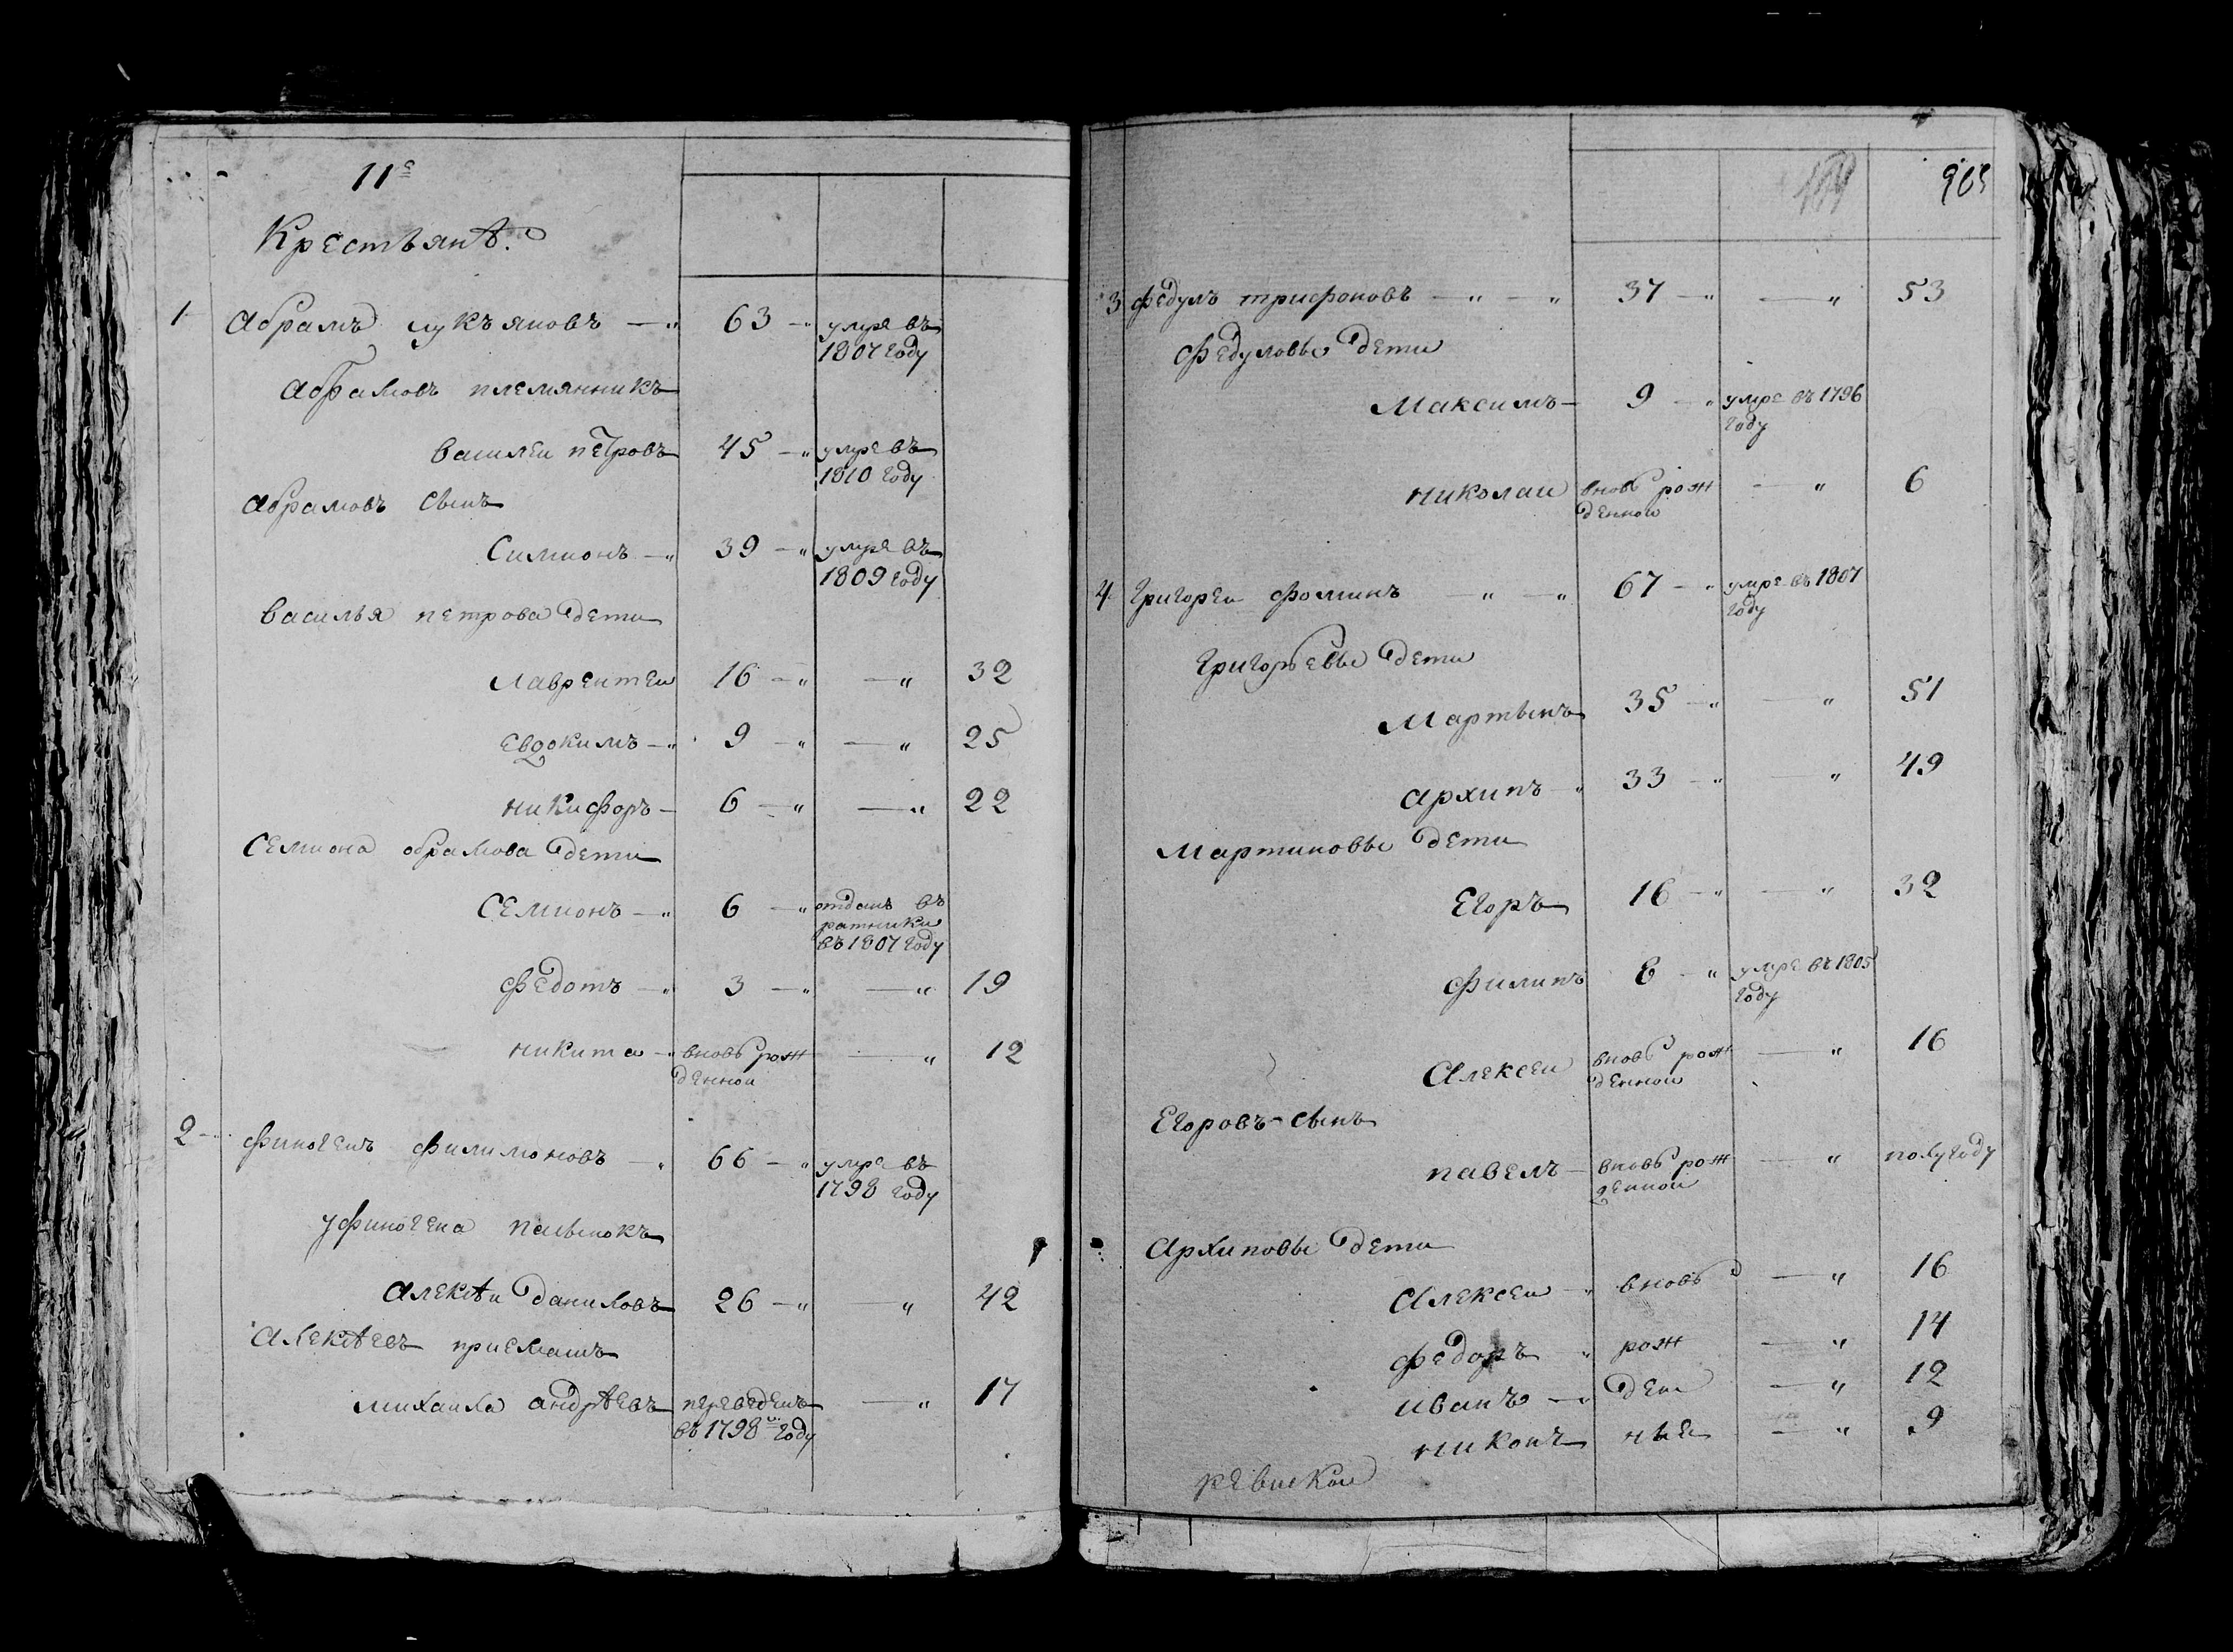 11е
Крестьянѣ.
1 Абрамъ лукъяновъ — „ 63 — „ умре въ
1807 году
Абрамовъ племянникъ
василеи петровъ 45 — „ умре въ
1810 году
Абрамовъ сынъ
Симионъ — „ 39 — „ умре въ
1809 году
василья петрова дети
лаврентеи 16 — „ — „ 32
евдокимъ — „ 9 — „ — „ 25
никифоръ — 6 — „ — „ 22
семиона абрамова дети
семионъ — „ 6 — „ отданъ въ
ратники
въ 1807 году
федотъ — „ 3 — „ — „ 19
никита — „ вновь рож — „ 12
денной
2 финогенъ филимоновъ — „ 66 — „ умре въ
1798 году
у финогена пасынокъ
алексѣи даниловъ 26 — „ — „ 42
Алексѣевъ приемашъ
михаила андрѣевъ переведенъ — „ 17
въ 1798м году
903
3 федулъ трифоновъ — „ — „ 37 — „ — „ 53
федуловы дети
Максимъ — 9 — „ умре въ 1796
году
николаи вновь рож — „ 6
денной
4 григореи фоминъ — „ — „ 67 — „ умре въ 1807
году
григорьевы дети
Мартынъ 35 — „ — „ 51
архипъ — „ 33 — „ — „ 49
Мартиновы дети
Егоръ 16 — „ — „ 32
филипъ 8 — „ умре въ 1805
году
Алексеи вновь рож — „ 16
денной
Егоровъ — сынъ
павелъ — вновь рож — „ полугоду
денной
Архиповы дети
Алексеи — „ вновь — „ 16
федоръ — „ рож — „ 14
иванъ — „ ден — „ 12
никонъ ные — „ 9
ревиской